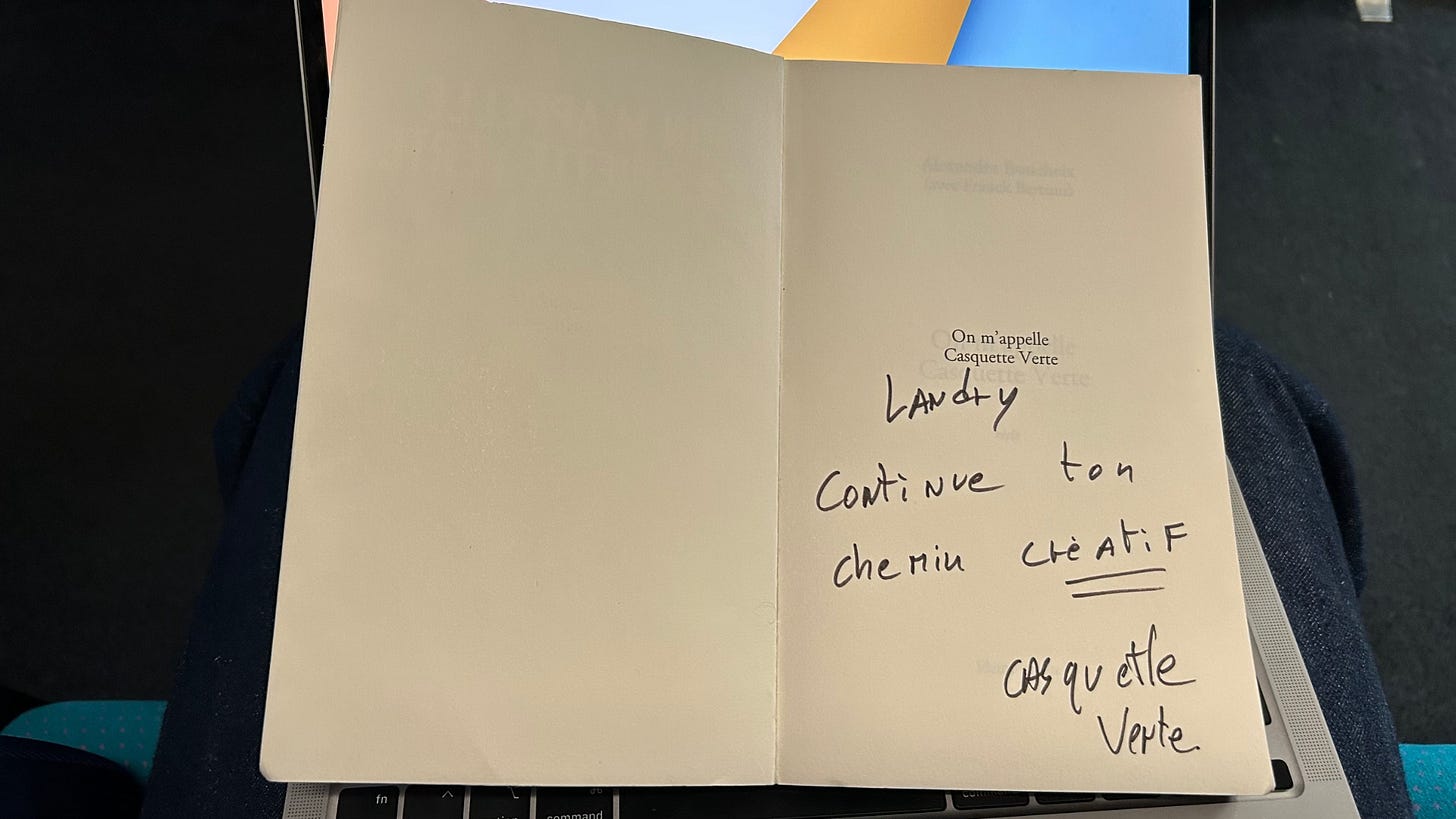 On m'appelle
Casquette Verte
Landry
Continue ton
chemin créatif
Casquette
Verte
fn
command